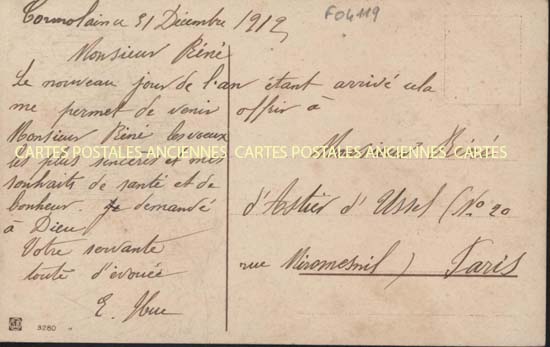 Cormolain ce 31 Décembre 1912
F04119
Monsieur Réné
Le nouveau jour de l'an étant arrivé cela
me permet de venir offrir à
Monsieur Réné les voeux
les plus sincères et mes
souhaits de santé et de
bonheur. Je demandé
à Dieu
Votre servante
toute dévouée
E. Hue
Monsieur Réné
d'Astier d'Ussel (No 20
rue Miromesnil) Paris
CARTES POSTALES ANCIENNES CARTES POSTALES ANCIENNES CARTES POSTALES ANCIENNES
3280